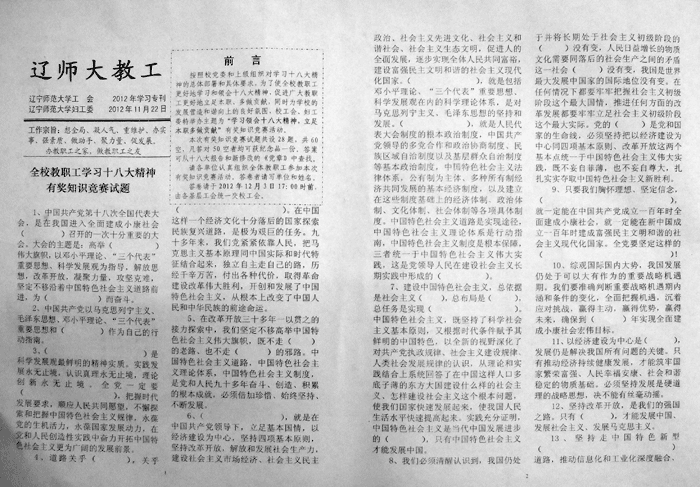 辽师大教工
辽宁师范大学工 会　2012年学习专刊
辽宁师范大学妇工委　2012年11月22日
工作宗旨：想全局、敲人气，重维护、办实
事，强素质、做助手，聚力量、促发展，
办教职工之家，做教职工之友
全校教职工学习十八大精神
有奖知识竞赛试题
1、中国共产党第十八次全国代表大
会，是在我国进入全面建成小康社会
（　　）召开的一次十分重要的大
会。大会的主题是：高举（　　）
伟大旗帜，以邓小平理论、“三个代表”
重要思想、科学发展观为指导，解放思
想，改革开放，凝聚力量，攻坚克难，
坚定不移沿着中国特色社会主义道路前
进，为（　　）而奋斗。
2、中国共产党以马克思列宁主义、
毛泽东思想、邓小平理论、“三个代表”
重要思想和（　　）作为自己的行
动指南。
3、（　　）是
科学发展观最鲜明的精神实质。实践发
展永无止境，认识真理永无止境，理论
创新永无止境。全党一定要
（　　），把握时代
发展要求，顺应人民共同愿望，不懈探
索和把握中国特色社会主义规律，永葆
党的生机活力，永葆国家发展动力，在
党和人民创造性实践中奋力开拓中国特
色社会主义更为广阔的发展前景。
4、道路关乎（　　），关乎
前　言
按照校党委和上级组织对学习十八大精神
的总体部署和具体要求，为了使全校教职工
更好地学习和领会十八大精神，促进广大教职
工更好地立足本职，多做贡献，同时为学校的
发展营造和谐向上的良好氛围，校工会、妇工
委特在全校举办主题为“学习领会十八大精神，立足
本职多做贡献”有奖知识竞赛活动。
本次有奖知识竞赛试题共设28题，共60
空，凡答对50空者均可获纪念品一份。答案可
从十八大报告和新修改的《党章》中查找。
请各单位认真组织全体教职工参加本次
有奖知识竞赛活动。答卷者请写单位和姓名。
答卷请于2012年12月3日17：00时前，
由各基层工会统一交校工会。
（　　），在中国
这样一个经济文化十分落后的国家探索
民族复兴道路，是极为艰巨的任务。九
十多年来，我们党紧紧依靠人民，把马
克思主义基本原理同中国实际和时代特
征结合起来，独立自主走自己的路，历
经千辛万苦，付出各种代价，取得革命
建设改革伟大胜利，开创和发展了中国
特色社会主义，从根本上改变了中国人
民和中华民族的前途命运。
5、在改革开放三十多年一以贯之的
接力探索中，我们坚定不移高举中国特
色社会主义伟大旗帜，既不走（　　）
的老路、也不走（　　）的邪路。中
国特色社会主义道路，中国特色社会主
义理论体系，中国特色社会主义制度，
是党和人民九十多年奋斗、创造、积累
的根本成就，必须倍加珍惜、始终坚持、
不断发展。
6、（　　），就是在
中国共产党领导下，立足基本国情，以
经济建设为中心，坚持四项基本原则，
坚持改革开放，解放和发展社会生产力，
建设社会主义市场经济、社会主义民主
政治、社会主义先进文化、社会主义和
谐社会、社会主义生态文明，促进人的
全面发展，逐步实现全体人民共同富裕，
建设富强民主文明和谐的社会主义现代
化国家。（　　），就是包括
邓小平理论、“三个代表”重要思想、
科学发展观在内的科学理论体系，是对
马克思列宁主义、毛泽东思想的坚持和
发展。（　　），就是人民代
表大会制度的根本政治制度，中国共产
党领导的多党合作和政治协商制度、民
族区域自治制度以及基层群众自治制度
等基本政治制度，中国特色社会主义法
律体系，公有制为主体、多种所有制经
济共同发展的基本经济制度，以及建立
在这些制度基础上的经济体制、政治体
制、文化体制、社会体制等各项具体制
度。中国特色社会主义道路是实现途径，
中国特色社会主义理论体系是行动指
南，中国特色社会主义制度是根本保障，
三者统一于中国特色社会主义伟大实
践，这是党领导人民在建设社会主义长
期实践中形成的（　　）。
7、建设中国特色社会主义，总依据
是社会主义（　　），总布局是（　　），
总任务是实现（　　）。
中国特色社会主义，既坚持了科学社会
主义基本原则，又根据时代条件赋予其
鲜明的中国特色，以全新的视野深化了
对共产党执政规律、社会主义建设规律、
人类社会发展规律的认识，从理论和实
践结合上系统回答了在中国这样人口多
底子薄的东方大国建设什么样的社会主
义、怎样建设社会主义这个根本问题，
使我们国家快速发展起来，使我国人民
生活水平快速提高起来。实践充分证明，
中国特色社会主义是当代中国发展进步
的（　　），只有中国特色社会主义
才能发展中国。
8、我们必须清醒认识到，我国仍处
于并将长期处于社会主义初级阶段的
（　　）没有变，人民日益增长的物质
文化需要同落后的社会生产之间的矛盾
这一社会（　　）没有变，我国是世界
最大发展中国家的国际地位没有变。在
任何情况下都要牢牢把握社会主义初级
阶段这个最大国情，推进任何方面的改
革发展都要牢牢立足社会主义初级阶段
这个最大实际。党的（　　）是党和国
家的生命线，必须坚持把以经济建设为
中心同四项基本原则、改革开放这两个
基本点统一于中国特色社会主义伟大实
践，既不妄自菲薄，也不妄自尊大，扎
扎实实夺取中国特色社会主义新胜利。
9、只要我们胸怀理想、坚定信念，
（　　），
就一定能在中国共产党成立一百年时全
面建成小康社会，就一定能在新中国成
立一百年时建成富强民主文明和谐的社
会主义现代化国家。全党要坚定这样的
（　　）！
10、综观国际国内大势，我国发展
仍处于可以大有作为的重要战略机遇
期。我们要准确判断重要战略机遇期内
涵和条件的变化，全面把握机遇，沉着
应对挑战，赢得主动，赢得优势，赢得
未来，确保到（　　）年实现全面建成
小康社会宏伟目标。
11、以经济建设为中心是（　　），
发展仍是解决我国所有问题的关键。只
有推动经济持续健康发展，才能筑牢国
家繁荣富强、人民幸福安康、社会和谐
稳定的物质基础。必须坚持发展是硬道
理的战略思想，决不能有丝毫动摇。
12、坚持改革开放，是我们的强国
之路，只有（　　），才能发展中国、
发展社会主义、发展马克思主义。
13、坚持走中国特色新型
（　　）
道路，推动信息化和工业化深度融合、
1
2